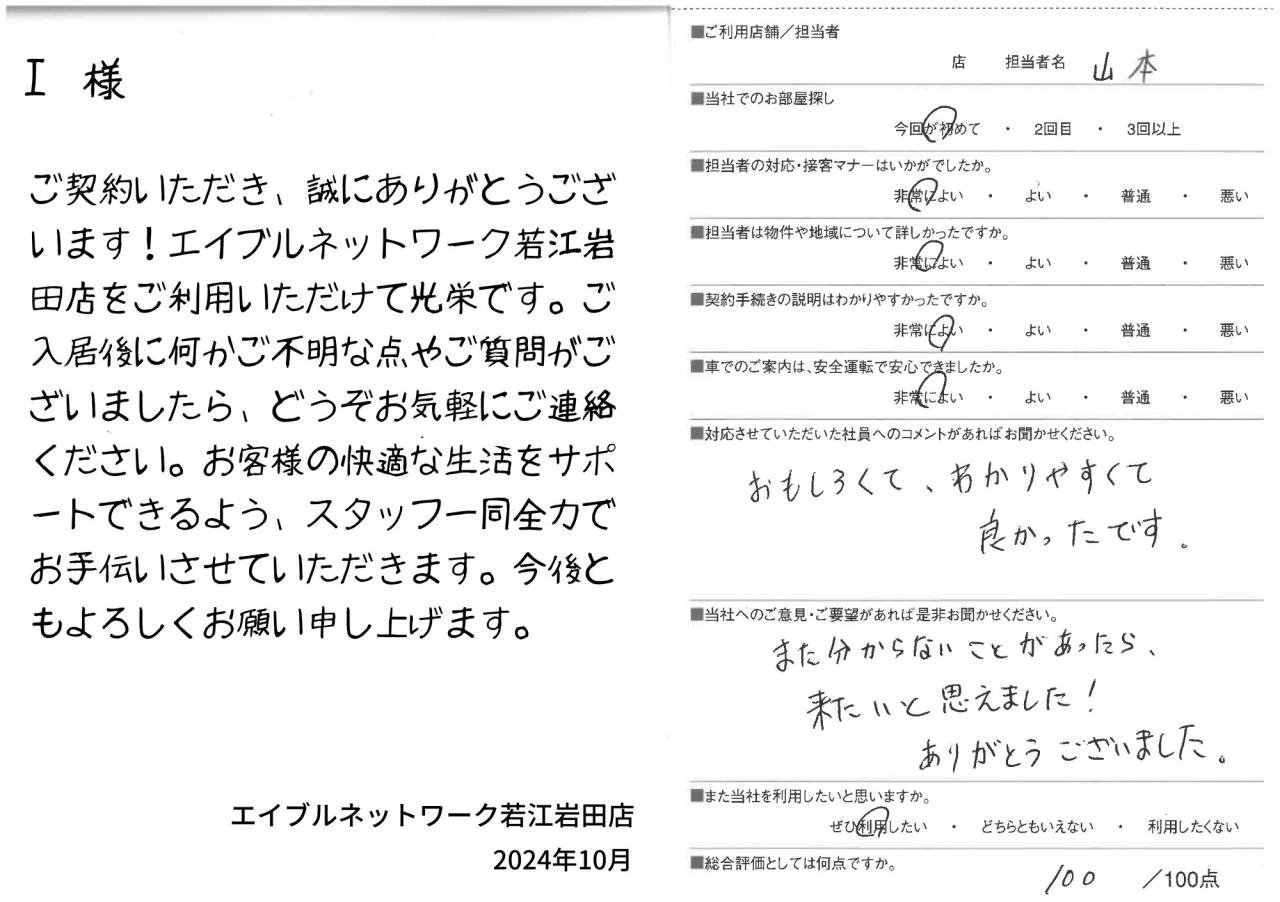 I 様
ご契約いただき、誠にありがとうござ
います！エイブルネットワーク若江岩
田店をご利用いただけて光栄です。ご
入居後に何かご不明な点やご質問がご
ざいましたら、どうぞお気軽にご連絡
ください。お客様の快適な生活をサポ
ートできるよう、スタッフ一同全力で
お手伝いさせていただきます。今後と
もよろしくお願い申し上げます。
エイブルネットワーク若江岩田店
2024年10月
■ご利用店舗／担当者
店 担当者名 山本
■当社でのお部屋探し
今回が初めて ・ 2回目 ・ 3回以上
■担当者の対応・接客マナーはいかがでしたか。
非常によい ・ よい ・ 普通 ・ 悪い
■担当者は物件や地域について詳しかったですか。
非常によい ・ よい ・ 普通 ・ 悪い
■契約手続きの説明はわかりやすかったですか。
非常によい ・ よい ・ 普通 ・ 悪い
■車でのご案内は、安全運転で安心できましたか。
非常によい ・ よい ・ 普通 ・ 悪い
■対応させていただいた社員へのコメントがあればお聞かせください。
おもしろくて、わかりやすくて
良かったです。
■当社へのご意見・ご要望があれば是非お聞かせください。
また分からないことがあったら、
来たいと思えました！
ありがとうございました。
■また当社を利用したいと思いますか。
ぜひ利用したい ・ どちらともいえない ・ 利用したくない
■総合評価としては何点ですか。
100 ／100点